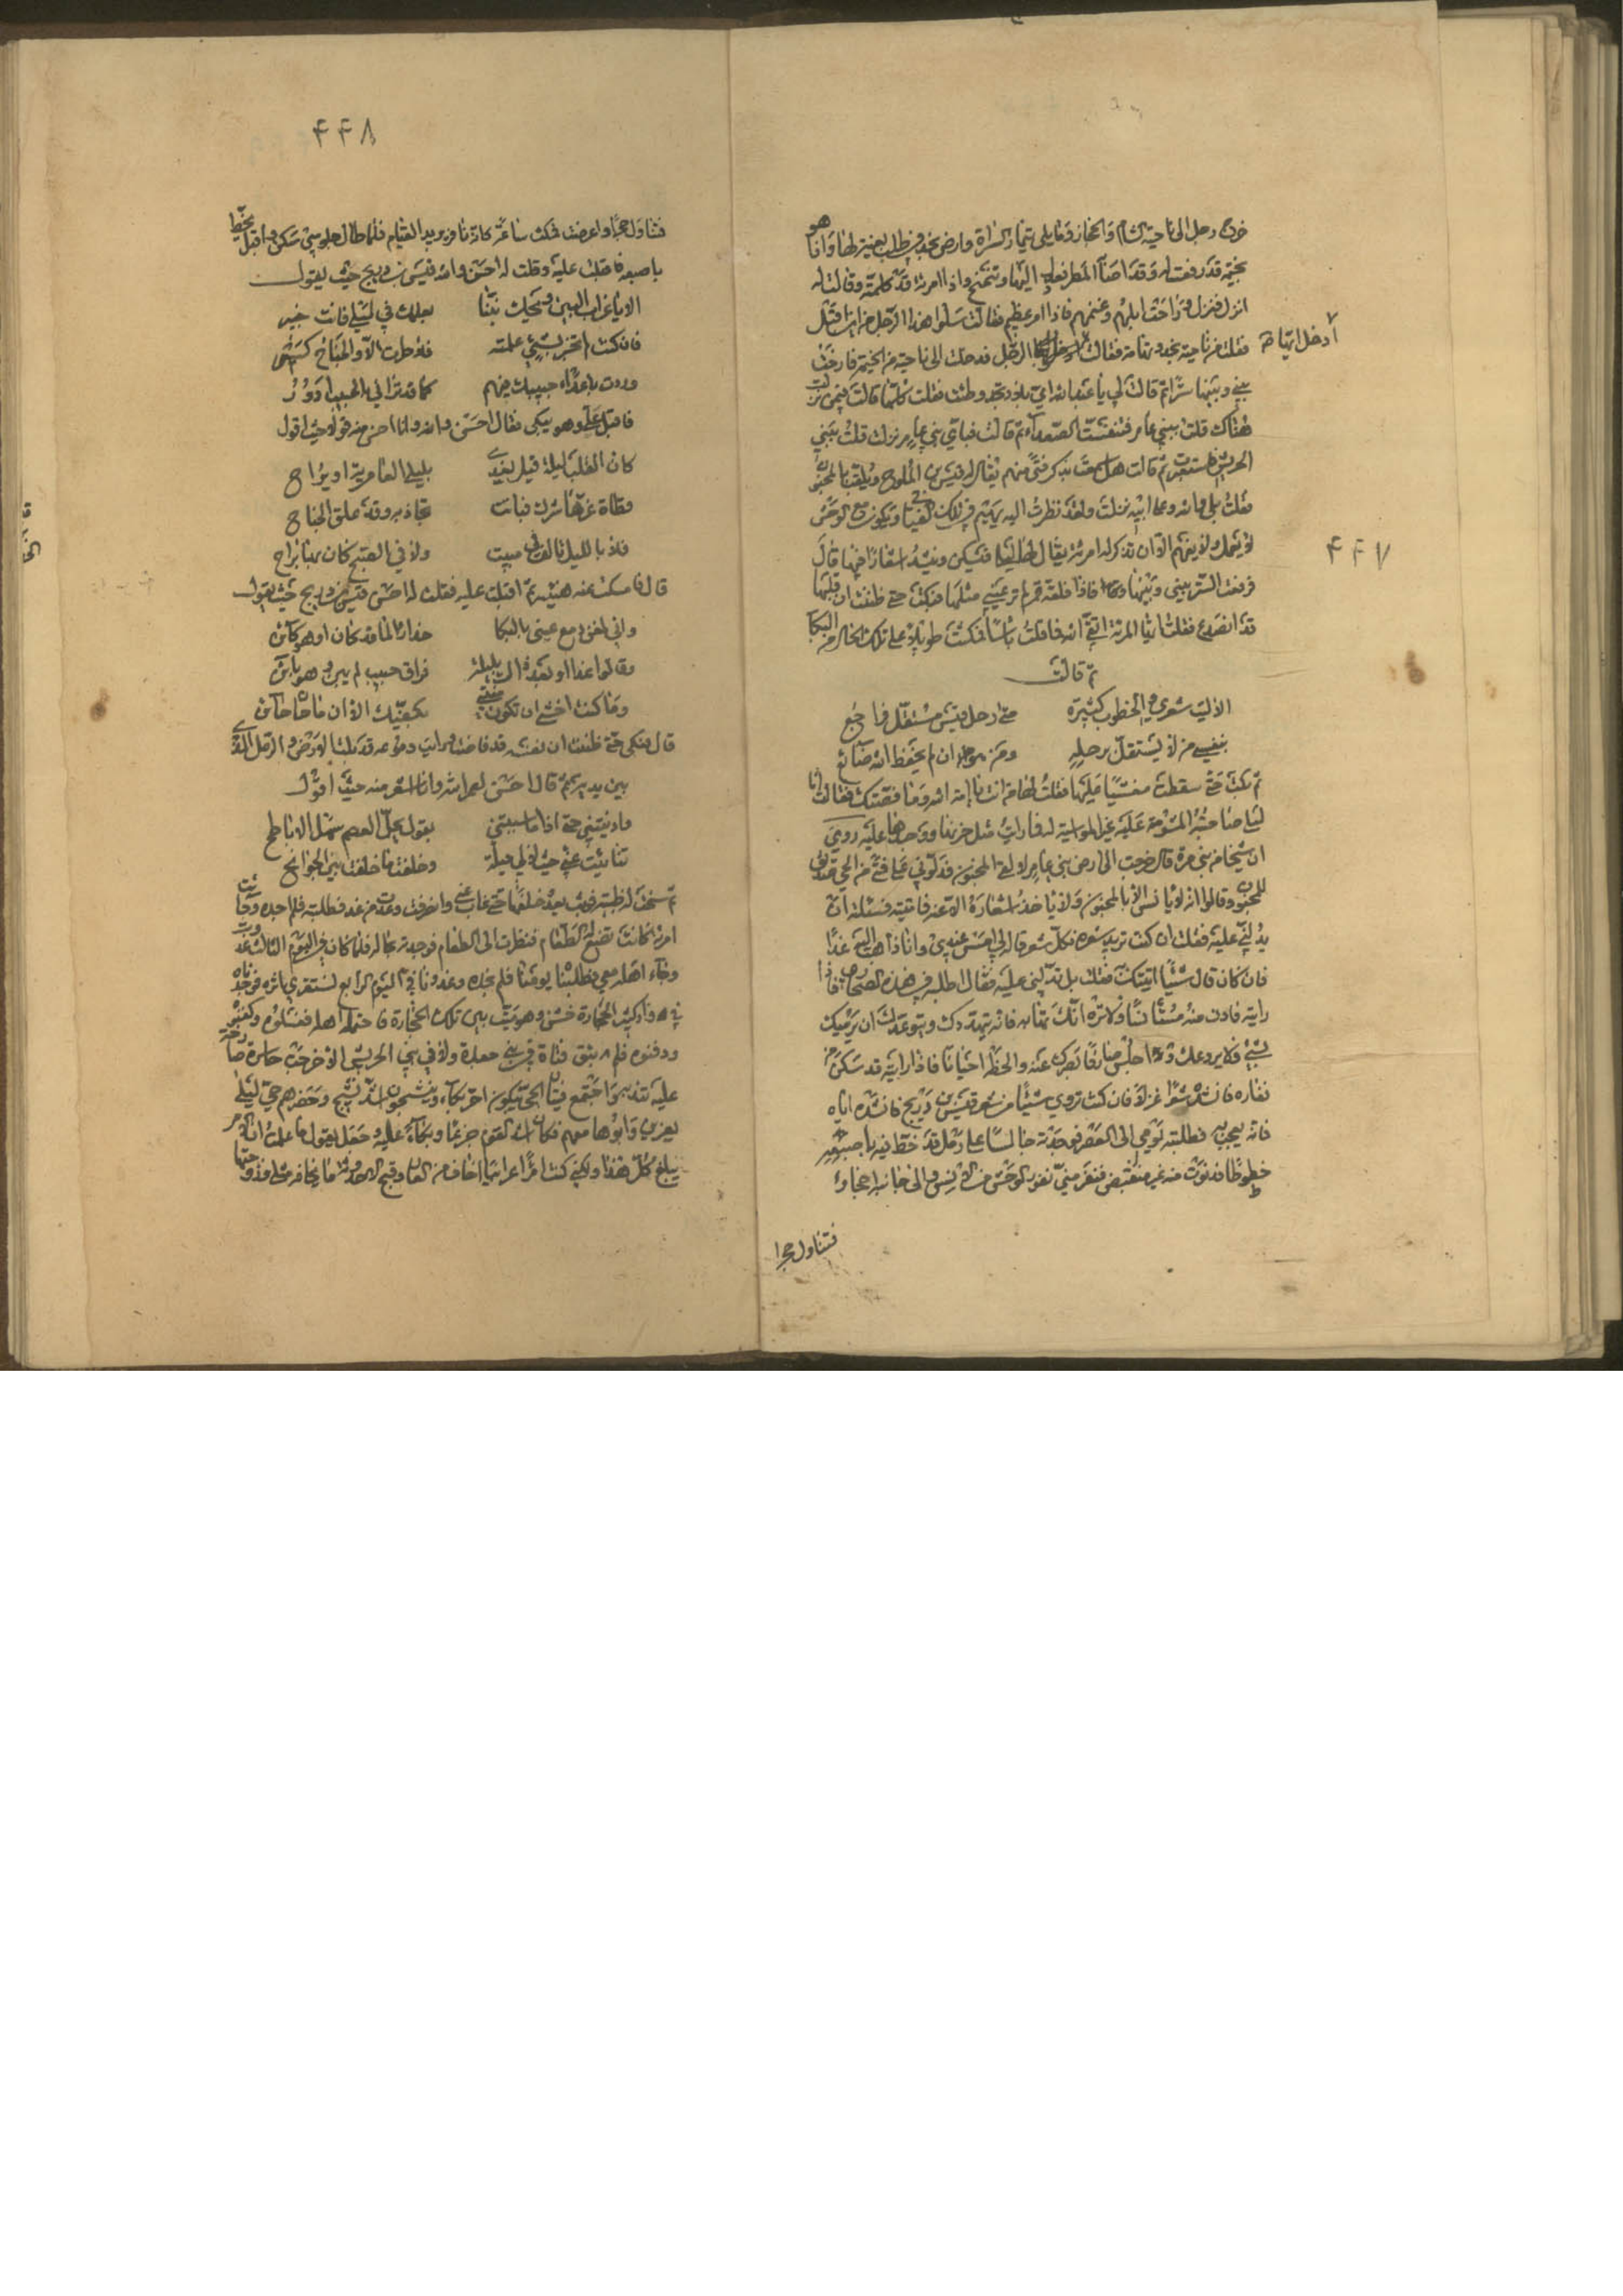 ٤٤٧
خرج رجل الى ناحية الشام والحجاز وما يلي تيماء والسراة وارض نجد في طلب بغية له واذا هو
بخيمة قد رفعت له وقد اصابه المطر فعدل اليها وتنحنح واذا امرئة قد كلمته وقالت له
انزل فنزل وراحت ابلهم وغنمهم فاذا امر عظيم فقالت سلوا هذا الرجل من اين اقبل
فقلت من ناحية نجد وتهامة فقالت الرجل فدخلت الى ناحية من الخيمة فارخت
ادخل ايها
بيني وبينها سترا ثم قالت لي يا عبد الله اي بلاد نجد وطئت فقلت كلها قالت فبمن نزلت
هناك قلت ببني عامر فتنفست الصعداء ثم قالت فباي بني عامر نزلت قلت ببني
الحريش فاستعبرت ثم قالت هل سمعت بذكر فتى منهم يقال له قيس بن الملوح ويلقب بالمجنون
فقلت بلى والله وعلى ابيه نزلت ولقد نظرت اليه يهيم في تلك الفيافي ويكون مع الوحش
لا يعقل ولا يفهم الا ان تذكر له امرئة يقال لها ليلى فيبكي وينشد اشعارا فيها قال
فرفعت الستر بيني وبينها فاذا فلقة قمر لم تر عيني مثلها فبكت حتى ظننت ان قلبها
قد انصدع فقلت ايتها المرئة اتقي الله فما قلت بأسا فمكثت طويلا على تلك الحال من البكا
ثم قالت
الا ليت شعري والخطوب كثيرة متى رحل قيس مستقل فراجع
بنفسي من لا يستقل برحله ومن هو ان لم يحفظ الله ضائع
ثم بكت حتى سقطت مغشيا عليها فقلت لها من انت يا امة الله وما قصتك فقالت انا
ليلى صاحبته المشومة عليه غير المواسية له فما رايت مثل حزنها ووجدها عليه روي
ان شيخا من بني مرة قال خرجت الى ارض بني عامر لالقى المجنون فدلوني على فتى من الحي صديق
للمجنون وقالوا انه لا يانس الا به المجنون ولا ياخذ اشعاره الا عنه فاتيته فسئلته ان
يدلني عليه فقلت ان كنت تريد شعره فكل شعر قاله الى امس عندي وانا ذاهب اليه غدا
فان كان قال شيئا اتيتك به فقلت بل تدلني عليه فقال اطلبه في هذه الصحارى فاذا
رايته فادن منه مستأنسا ولا تره انك تهابه فانه يتهددك ويتوعدك ان يرميك
بشيء فلا يروعنك واجلس صارفا بصرك عنه والحظه احيانا فاذا رايته قد سكن من
نفاره فانشده شعرا غزلا فان كنت تروي شيئا من شعر قيس بن ذريح فانشده اياه
فانه يعجب به فطلبته يومي الى العصر فوجدته جالسا على رمل قد خط فيه باصبعه
خطوطا فدنوت منه غير منقبض فنفر مني نفور الوحش من الانس والى جانبه احجار
فتناول حجرا
٤٤٨
فتناول حجرا واعرضت فمكث ساعة كانه نافر يريد القيام فلما طال جلوسي سكن واقبل يخط
باصبعه فاقبلت عليه وقلت له احسن والله قيس بن ذريح حيث يقول
الا يا غراب البين ويحك نبنا بعلمك في لبنى فانت خبير
فان كنت لم تخبر بشيء علمته فلا طرت الا والجناح كسير
ودرت باعداء حبيبك فيهم كما قد تراني بالحبيب ادور
فاقبل علي وهو يبكي فقال احسن والله وانا احسن منه قولا حيث اقول
كان القلب ليلة قيل يغدى بليلى العامرية او يراح
قطاة عزها شرك فباتت تجاذبه وقد علق الجناح
فلا بالليل نالت ولا في الصبح كان بها براح
قال فامسكت عنه هنيئة ثم اقبلت عليه فقلت له احسن قيس بن ذريح حيث يقول
واني لمفن دمع عيني بالبكا حذارا لما قد كان او هو كائن
وقالوا غدا او بعد ذاك بليلة فراق حبيب لم يبن وهو بائن
وما كنت اخشى ان تكون منيتي بكفيك الا ان ما حان حائن
قال فبكى حتى ظننت ان نفسه قد فاضت ورايت دموعه قد بلت الارض والرمل الذي
بين يديه ثم قال احسن لعمر الله وانا اشعر منه حيث اقول
وادنيتني حتى اذا ما سبيتني بقول يحل العصم سهل الاباطح
تنائيت عني حين لا لي حيلة وخلفت ما خلفت بين الجوانح
ثم سنحت له ظبية فوثب يعدو خلفها حتى غاب عني وانصرفت وعدت من غد فطلبته فلم اجده وجائت
امرئة كانت تصنع له الطعام فنظرت الى الطعام فوجدته بحاله فلما كان في اليوم الثالث غدوت
وجاء اهله معي فطلبنا يومنا فلم نجده وغدونا في اليوم الرابع نستقري اثره فوجدناه
في واد كثير الحجارة خشن وهو ميت بين تلك الحجارة فاحتمله اهله فغسلوه وكفنوه
ودفنوه فلم تبق فتاة في بني جعدة ولا في بني الحريش الا خرجت حاسرة صارخة
عليه تندبه واجتمع فتيان الحي يبكون احر بكاء وينشجون اشد نشيج وحضرهم حي ليلى
يعزين وابوها معهم فكان اشد القوم جزعا وبكاء عليه وجعل يقول ما علمت ان الامر
يبلغ كل هذا ولكني كنت امرأ اعرابيا اخاف من العار وقبح الاحدوثة ما يخافه مثلي فزوجتها